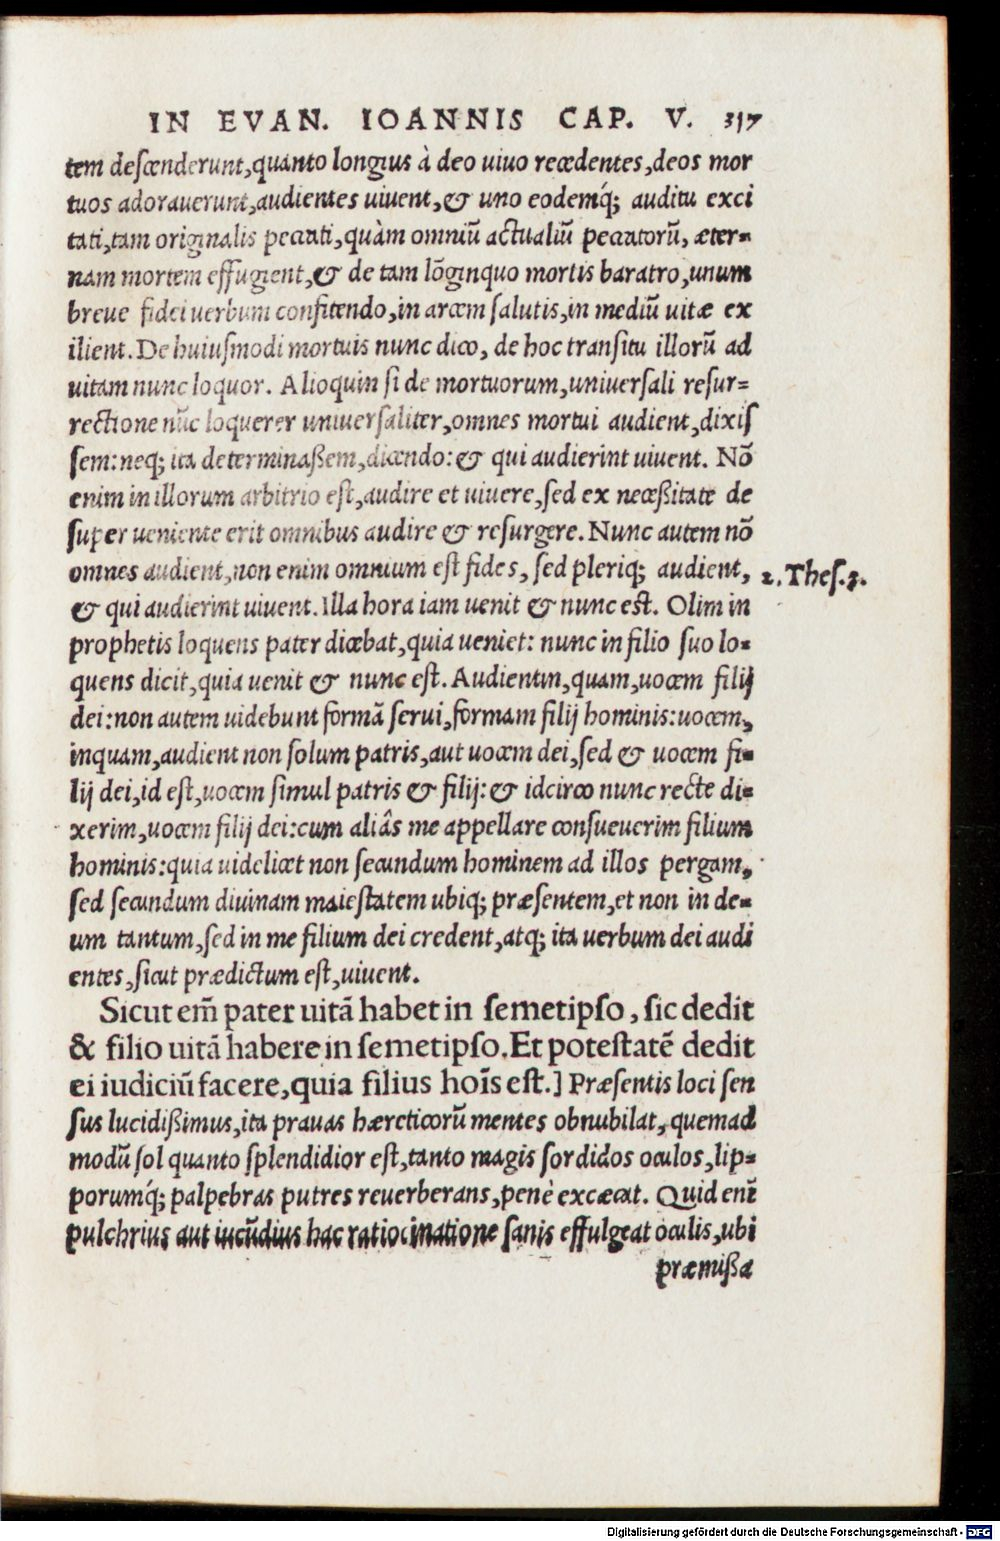 IN EVAN. IOANNIS CAP. V. 317
tem descenderunt, quanto longius à deo uiuo recedentes, deos mor
tuos adorauerunt, audientes uiuent, & uno eodemq́; auditu exci
tati, tam originalis peccati, quàm omniũ actualiũ peccatorũ, æter-
nam mortem effugient, & de tam lõginquo mortis baratro, unum
breue fidei uerbum confitendo, in arcem salutis, in mediũ uitæ ex
ilient. De huiusmodi mortuis nunc dico, de hoc transitu illorũ ad
uitam nunc loquor. Alioquin si de mortuorum, uniuersali resur-
rectione nũc loquerer uniuersaliter, omnes mortui audient, dixis
sem: neq; ita determinaßem, dicendo: & qui audierint uiuent. Nõ
enim in illorum arbitrio est, audire et uiuere, sed ex neceßitate de
super ueniente erit omnibus audire & resurgere. Nunc autem nõ
omnes audient, non enim omnium est fides, sed pleriq; audient,
2. Thes. 3.
& qui audierint uiuent. Illa hora iam uenit & nunc est. Olim in
prophetis loquens pater dicebat, quia ueniet: nunc in filio suo lo-
quens dicit, quia uenit & nunc est. Audientin, quam, uocem filij
dei: non autem uidebunt formã serui, formam filij hominis: uocem,
inquam, audient non solum patris, aut uocem dei, sed & uocem fi-
lij dei, id est, uocem simul patris & filij: & idcirco nunc recte di-
xerim, uocem filij dei: cum aliâs me appellare consueuerim filium
hominis: quia uidelicet non secundum hominem ad illos pergam,
sed secundum diuinam maiestatem ubiq; præsentem, et non in de-
um tantum, sed in me filium dei credent, atq; ita uerbum dei audi
entes, sicut prædictum est, uiuent.
Sicut em̃ pater uitã habet in semetipso, sic dedit
& filio uitã habere in semetipso. Et potestatẽ dedit
ei iudiciũ facere, quia filius hoĩs est.] Præsentis loci sen
sus lucidißimus, ita prauas hæreticorũ mentes obnubilat, quemad
modũ sol quanto splendidior est, tanto magis sordidos oculos, lip-
porumq́; palpebras putres reuerberans, penè excæcat. Quid enĩ
pulchrius aut iucũdius hac ratiocinatione sanis effulgeat oculis, ubi
præmißa
Digitalisierung gefördert durch die Deutsche Forschungsgemeinschaft - DFG